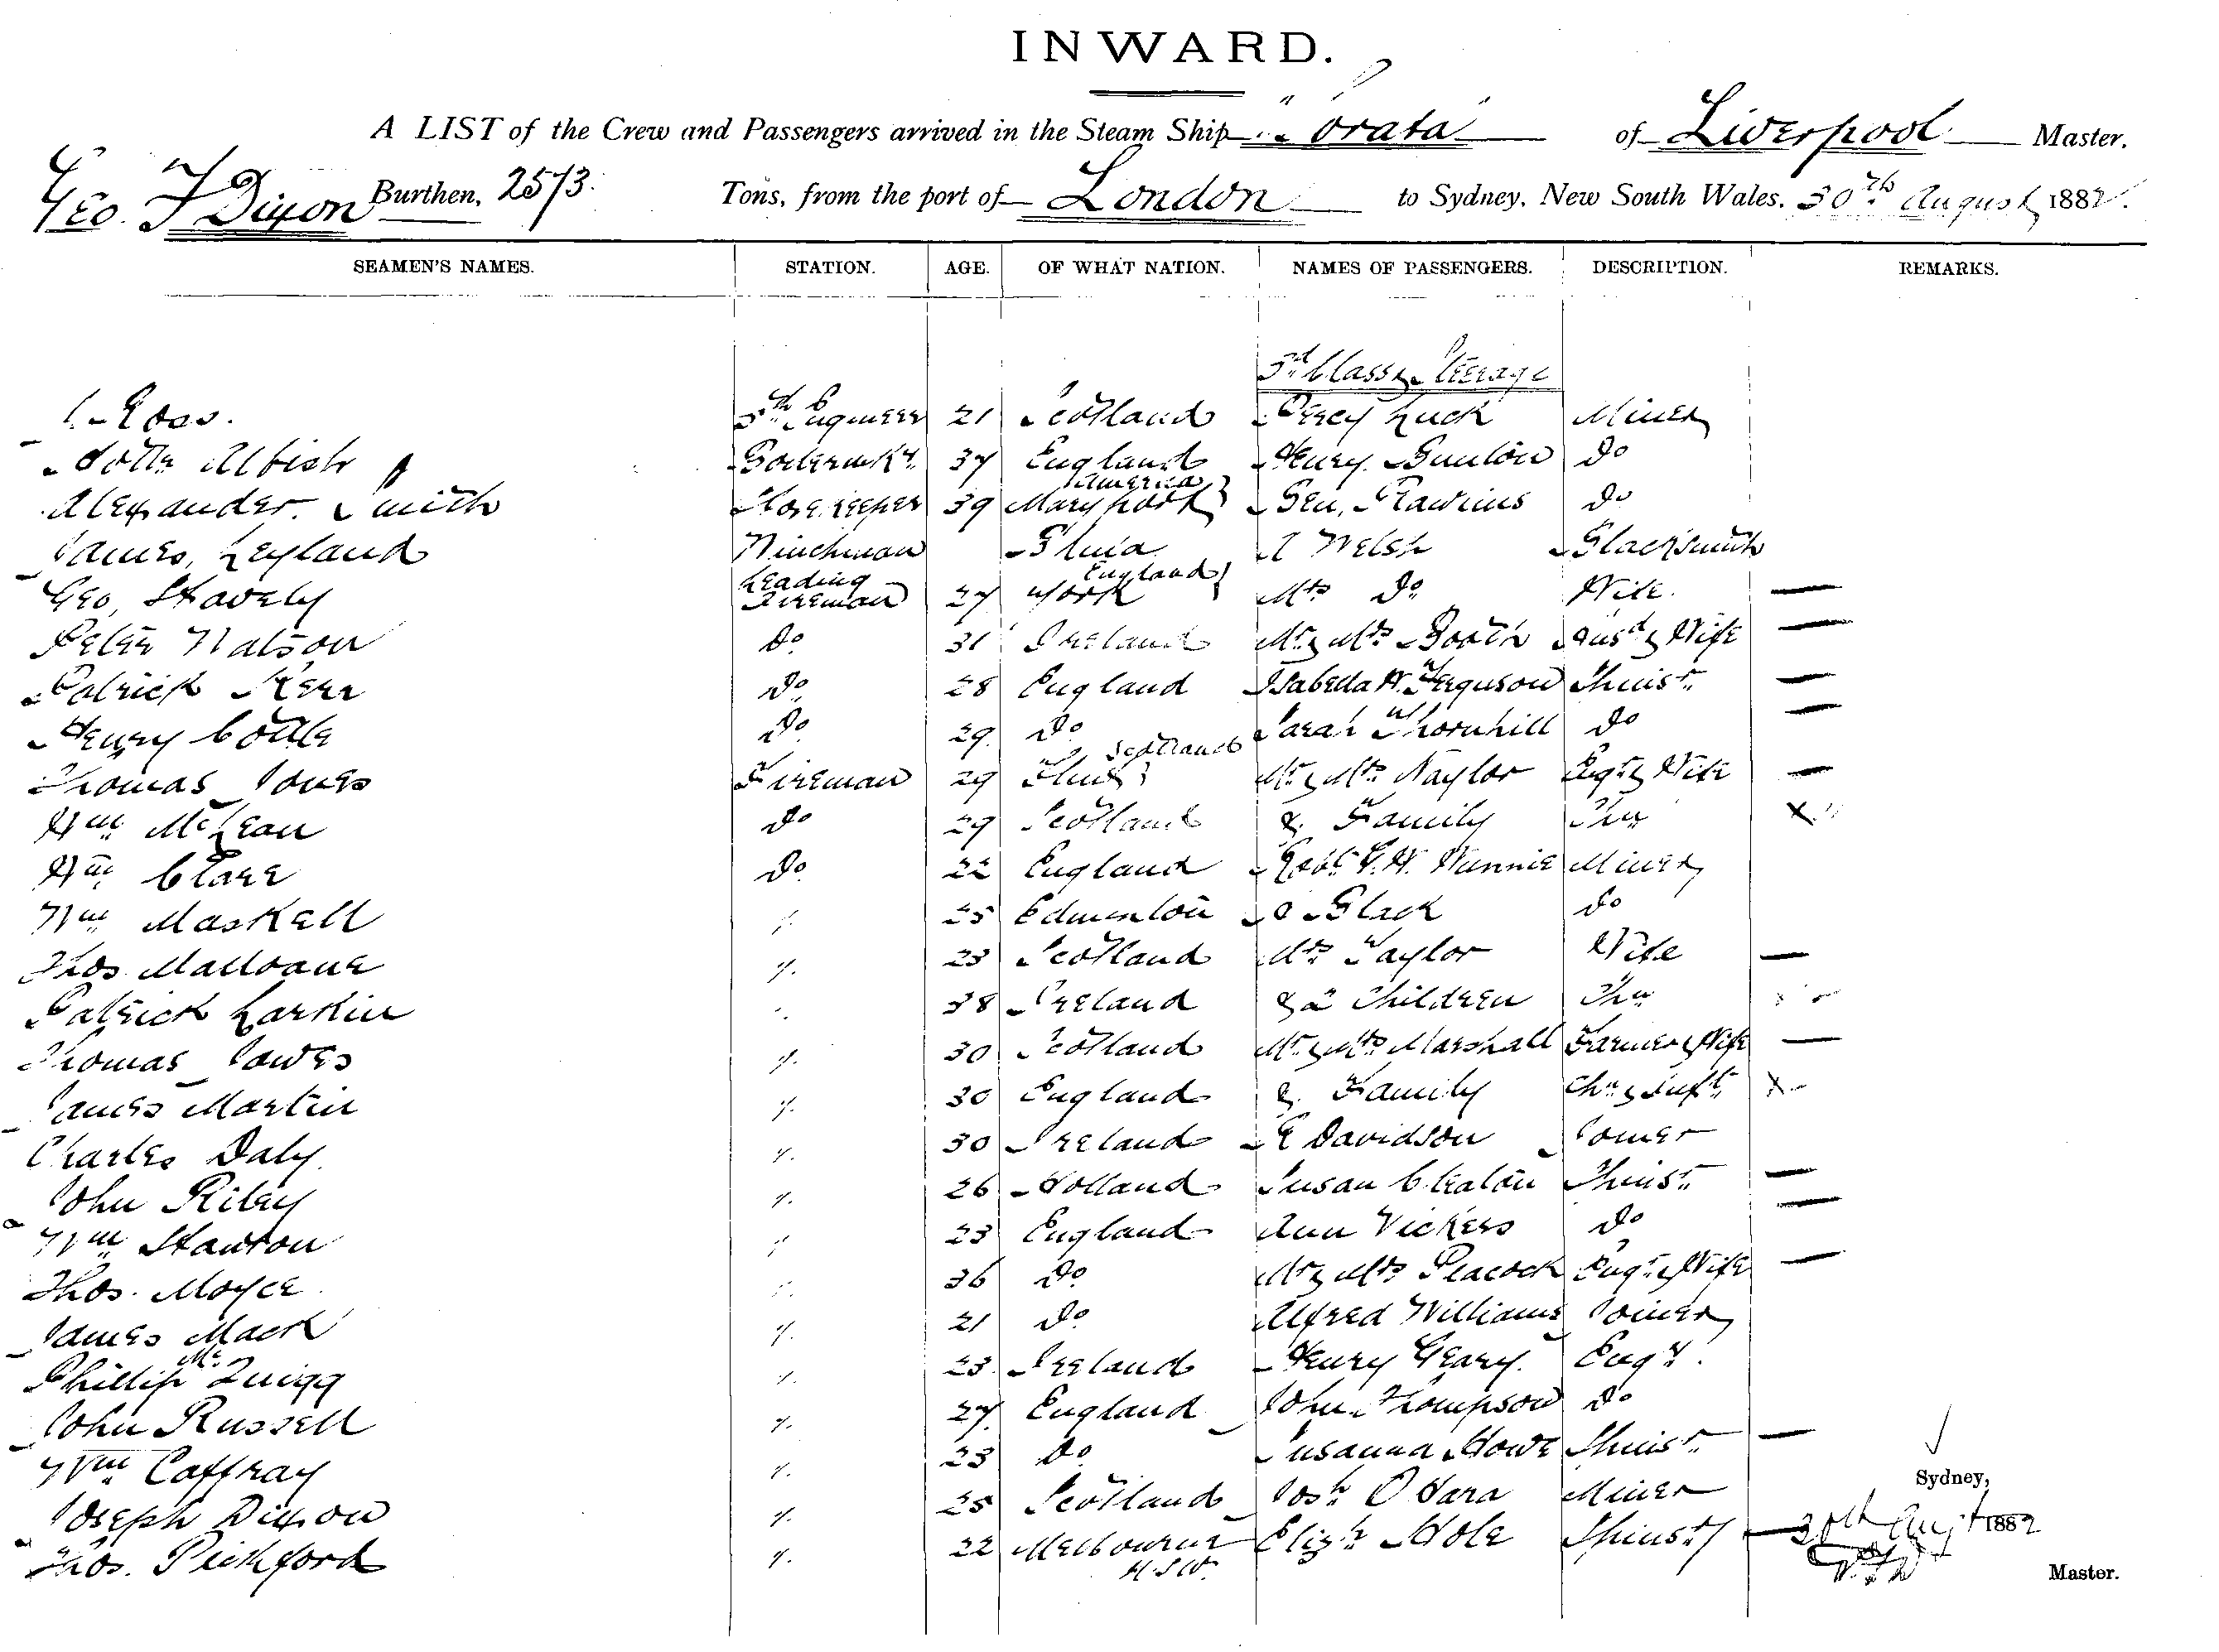 INWARD.
A LIST of the Crew and Passengers arrived in the Steam Ship "Sorata" of Liverpool Master.
Geo. F Dixon Burthen, 2573. Tons, from the port of London to Sydney, New South Wales. 30th August 1882.
SEAMEN'S NAMES. STATION. AGE. OF WHAT NATION. NAMES OF PASSENGERS. DESCRIPTION. REMARKS.
3rd Class & Steerage
J. Ross. 5th Engineer 21 Scotland Percy Luck Miner
39 England Henry Do
America
Alexander Smith Storekeeper 39 Maryport Do
James, Leyland Winchman J Welsh Blacksmith
Leading England
Geo, Stavely Fireman 27 York Mrs Do Wife.
Peter Watson Do 31 Ireland Mr & Mrs Booth & Wife
Patrick Kerr Do 28 England Isabella W. Ferguson Spinstr
Henry Cottle Do 29 Do Sarah Thornhill Do
Scotland
Thomas Jones Fireman 29 Mr & Mrs Naylor Engr & Wife
Wm McLean Do 29 Scotland & Family Chn X
Wm Clare Do 22 England Robt Miner
Wm Maskell " 25 Edmonton J Black Do
Thos Malloane " 23 Scotland Mrs Taylor Wife
Patrick Larkin " 38 Ireland & 2 Children Chn
Thomas Jones " 30 Scotland Mr & Mrs Marshall Farmer & Wife
James Martin " 30 England & Family Chn & Inft X
Charles Daly " 30 Ireland E Davidson Joiner
John Riley " 26 Holland Susan Cleaton Spinstr
Wm Stanton " 23 England Ann Vickers Do
Thos. Moyce " 36 Do Mr & Mrs Peacock Engr & Wife
James Mack " 21 Do Alfred Williams Joiner
Phillip McQuigg " 23 Ireland Henry Geary. Engr.
John Russell " 27 England John Thompson Do
Wm Caffray " 23 Do Susanna Howe Spinstr
Joseph Dixon " 25 Scotland Josh O Hara Miner
Thos. Pickford " 22 Melbourne Elizh Hole Spinstr
Sydney,
30th Augt 1882
Master.